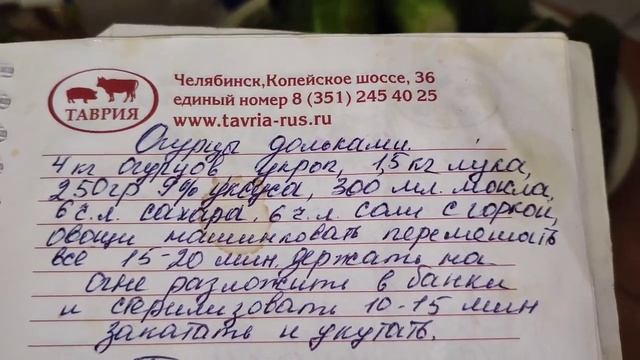 ТАВРИЯ
Челябинск,Копейское шоссе, 36
единый номер 8 (351) 245 40 25
www.tavria-rus.ru
Огурцы дольками.
4 кг огурцов укроп, 1,5 кг лука,
250гр 9% уксуса, 300 мл. масла,
6 ч.л. сахара 6 ч.л. соли с горкой,
овощи нашинковать перемешать
все 15-20 мин. держать на
огне разложить в банки
и стерилизовать 10-15 мин
закатать и укутать.